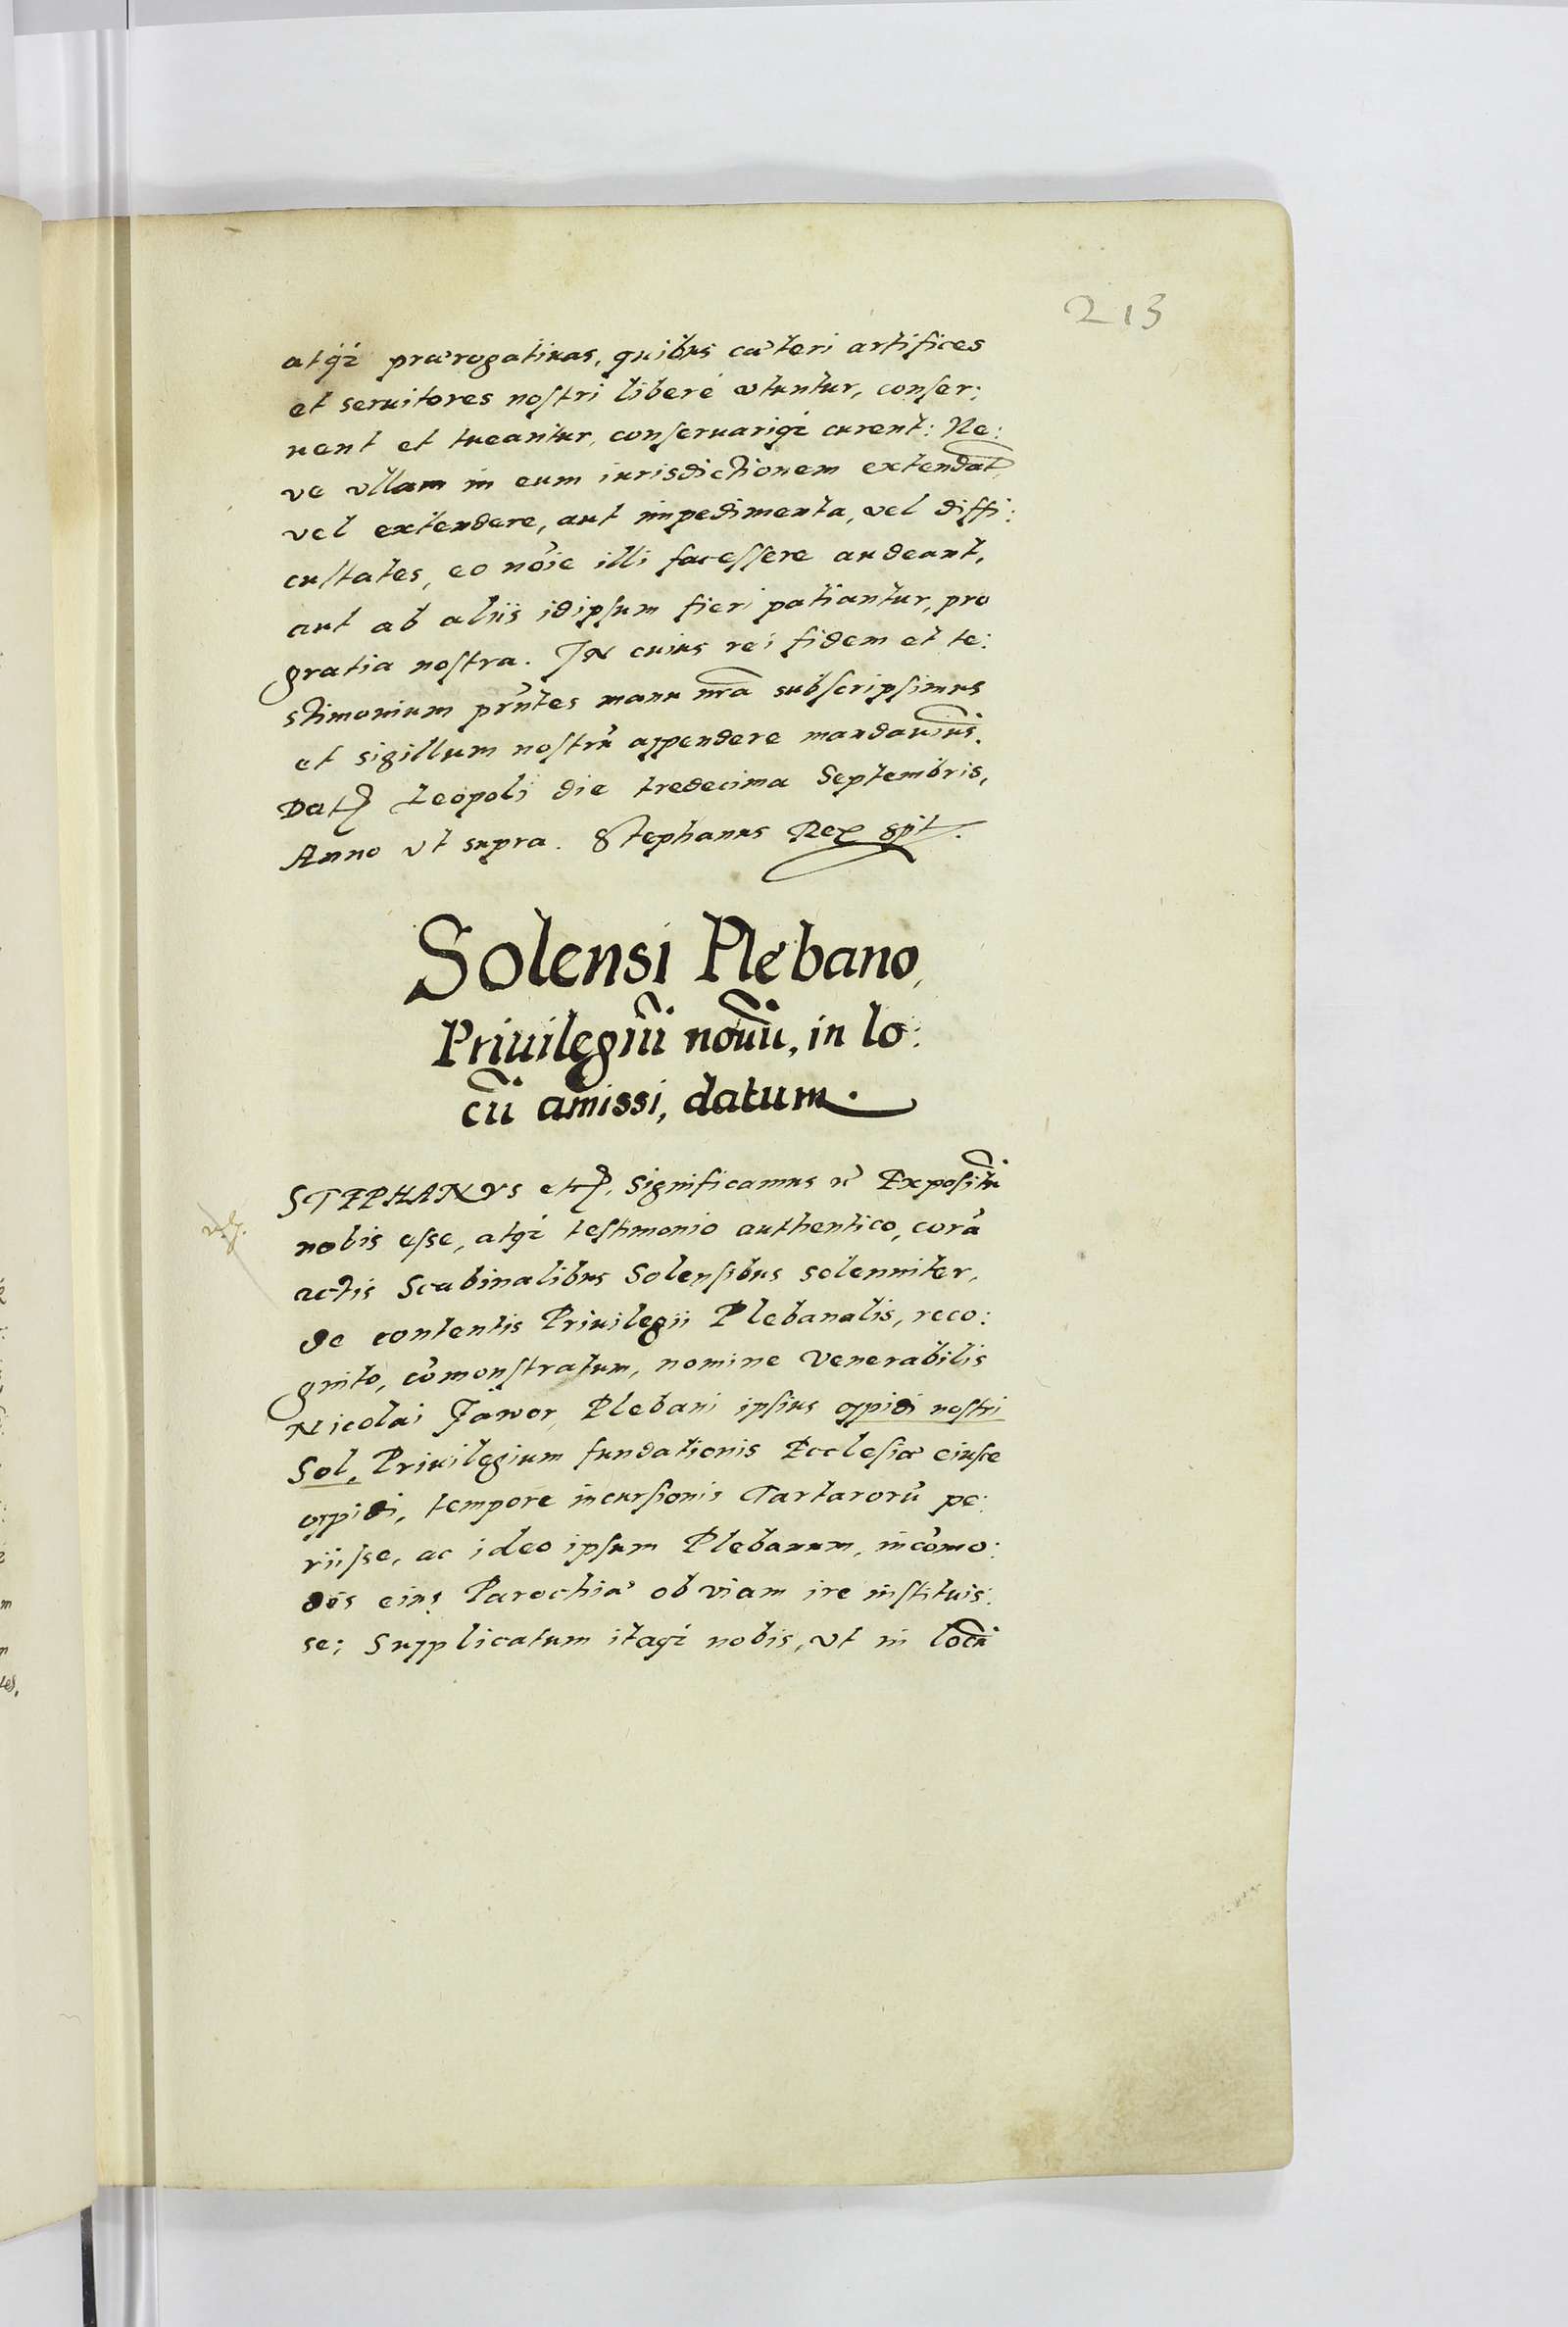 213
atq́ꝫ prærogatiuas, quibus cæteri artifices
et seruitores nostri liberé vtuntur, conser:
uent et tueantur, conseruariq́ꝫ curent: Ne:
ve vllam in eum iurisdictionem extendāt,
vel extendere, aut impedimenta, vel diffi:
cultates, eo nōie illi facessere audeant,
aut ab aliis idipsum fieri patiantur, pro
gratia nostra. IN cuius rei fidem et te:
stimonium prn̄tes manu nr̄a subscripsimus
et sigillum nostrū appendere mandauim̄s.
Datꝫ Leopoli die tredecima Septembris,
Anno vt supra. Stephanus Rex spt.
Solensi Plebano,
Priuilegiū nouū, in lo:
cū amissi, datum.
STEPHANVS etꝫ. Significamus ꝛc̄ Expositū
nobis esse, atq́ꝫ testimonio authentico, corā
actis Scabinalibus Solensibus solenniter,
de contentis Priuilegii Plebanalis, reco:
gnito, cōmonstratum, nomine Venerabilis
Nicolai Jawor, Plebani ipsius oppidi nostri
Sol, Priuilegium fundationis Ecclesiæ eiusce
oppidi, tempore incursionis Tartarorū pe:
riisse, ac ideo ipsum Plebanum, incōmo:
dis eius Parochiæ obviam ire instituis:
se; Supplicatum itaq́ꝫ nobis, vt in locū